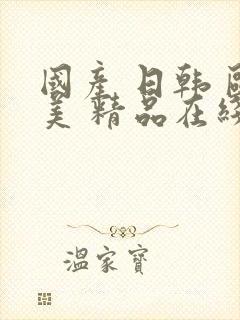 國產日韓歐
美精品在線
溫家寶